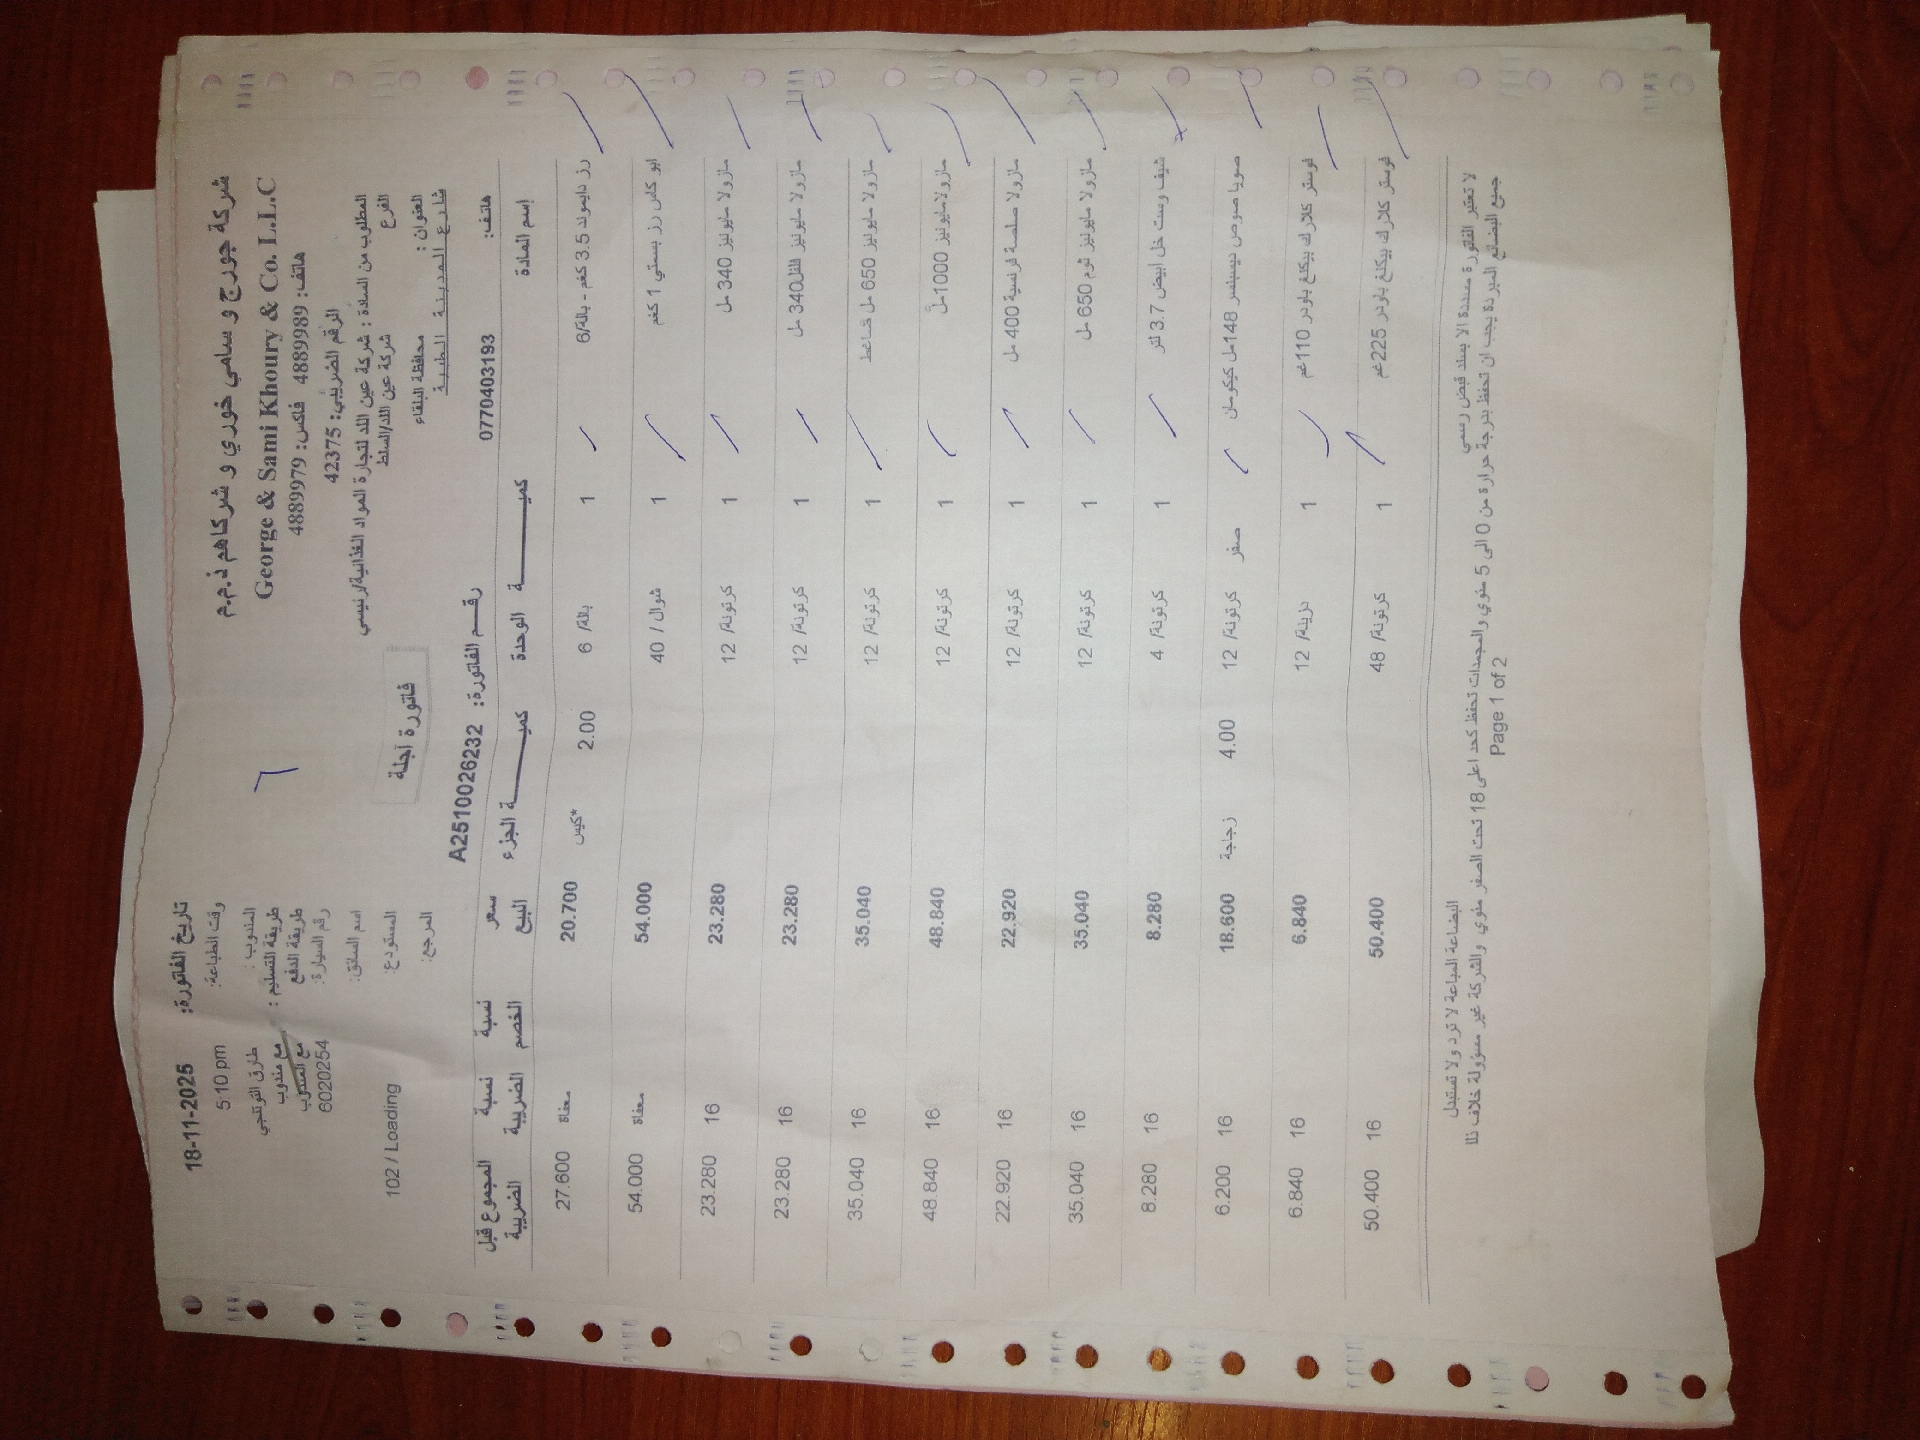 شركة جورج و سامي خوري و شركاهم ذ.م.م
George & Sami Khoury & Co. L.L.C
هاتف: 4889989 فاكس: 4889979
الرقم الضريبي: 42375
المطلوب من السادة : شركة عين اللد لتجارة المواد الغذائية/رئيسي
الفرع شركة عين اللد/السلط
العنوان : محافظة البلقاء
شارع المدينة الطبية
هاتف: 0770403193
تاريخ الفاتورة: 18-11-2025
وقت الطباعة: 5:10 pm
المندوب : طارق التوتنجي
طريقة التسليم : مع مندوب
طريقة الدفع مع المندوب
رقم السيارة: 6020254
اسم السائق:
المستودع: 102 / Loading
المرجع:
فاتورة آجلة
رقم الفاتورة: A25100026232
إسم المادة كميـــة الوحدة كميـــة الجزء سعر البيع نسبة الخصم نسبة الضريبة المجموع قبل الضريبة
رز دايموند 3.5 كغم - بالة/6 1 بالة/ 6 2.00 كيس* 20.700 معفاة 27.600
ابو كاس رز بسمتي 1 كغم 1 شوال / 40 54.000 معفاة 54.000
مازولا مايونيز 340 مل 1 كرتونة/ 12 23.280 16 23.280
مازولا مايونيز فلفل340 مل 1 كرتونة/ 12 23.280 16 23.280
مازولا مايونيز 650 مل ضاغط 1 كرتونة/ 12 35.040 16 35.040
مازولامايونيز 1000مل 1 كرتونة/ 12 48.840 16 48.840
مازولا صلصة فرنسية 400 مل 1 كرتونة/ 12 22.920 16 22.920
مازولا مايونيز ثوم 650 مل 1 كرتونة/ 12 35.040 16 35.040
شيف وست خل ابيض 3.7 لتر 1 كرتونة/ 4 8.280 16 8.280
صويا صوص ديسبنسر 148مل كيكومان صفر كرتونة/ 12 4.00 زجاجة 18.600 16 6.200
فوستر كلارك بيكنغ باودر 110غم 1 دزينة/ 12 6.840 16 6.840
فوستر كلارك بيكنغ باودر 225غم 1 كرتونة/ 48 50.400 16 50.400
لا تعتبر الفاتورة مسددة الا بسند قبض رسمي البضاعة المباعة لا ترد ولا تستبدل
جميع البضائع المبردة يجب ان تحفظ بدرجة حرارة من 0 الى 5 مئوي والمجمدات تحفظ كحد اعلى 18 تحت الصفر مئوي والشركة غير مسؤولة خلاف ذلك
Page 1 of 2